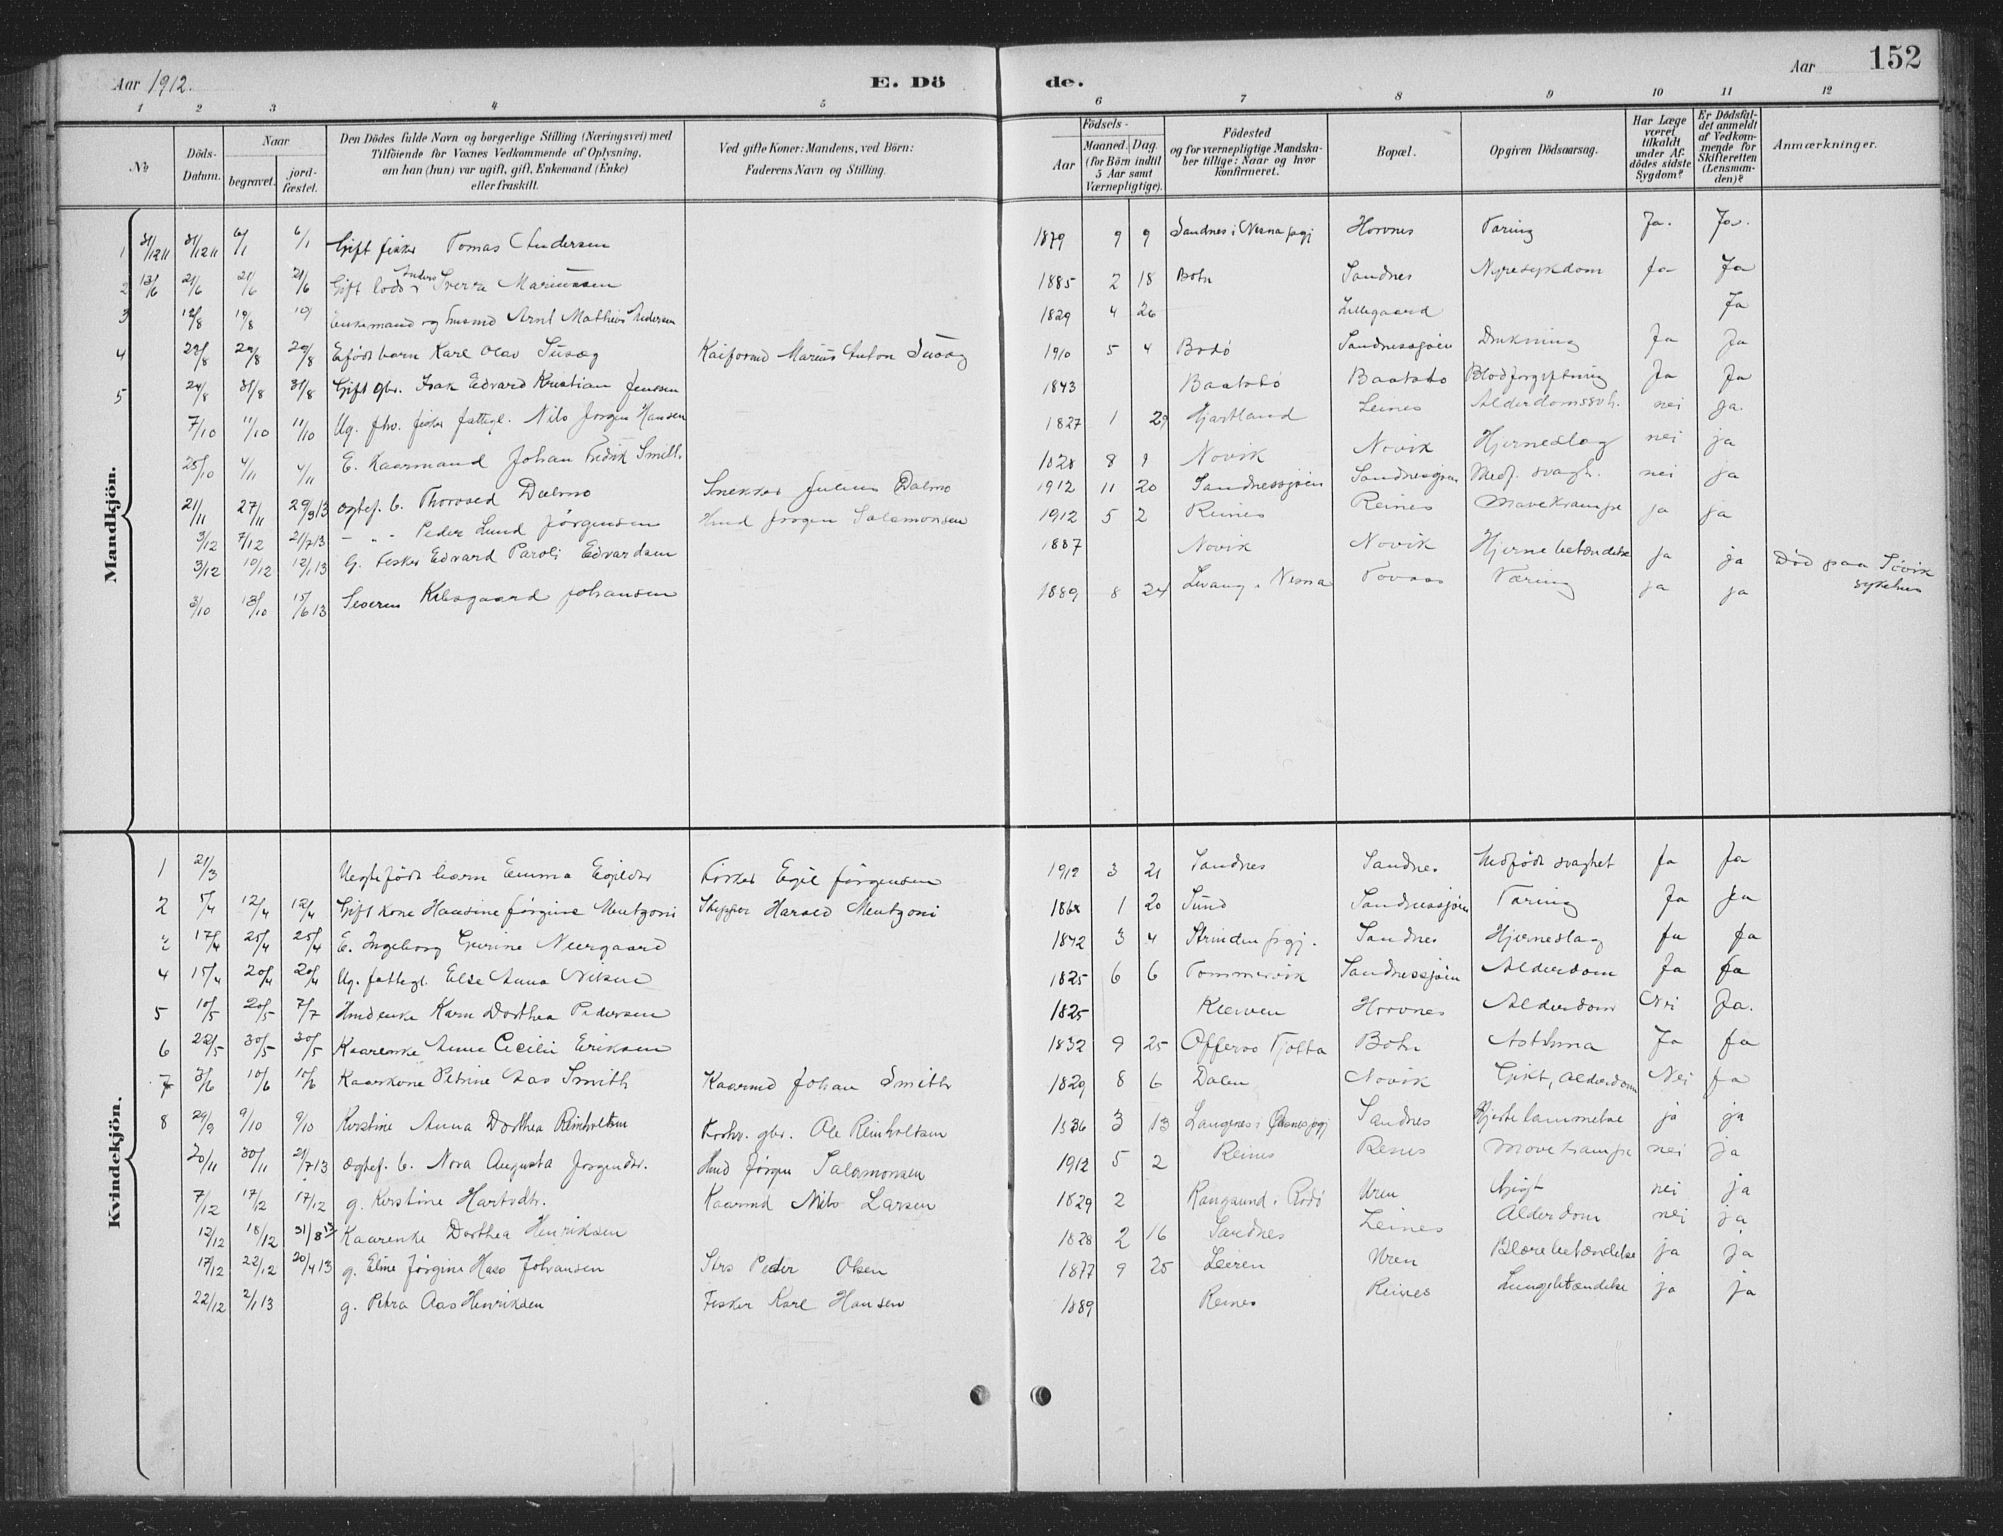 Aar 1912. E. Dö de. Aar 152
1 2 3 4 5 6 7 8 9 10 11 12
No Döds-Datum. Naar begravet. jord-fæstet. Den Dödes fulde Navn og borgerlige Stilling (Næringsvei) med Tilföiende for Voxnes Vedkommende af Oplysning, om han (hun) var ugift, gift, Enkemand (Enke) eller fraskilt. Ved gifte Koner: Mandens, ved Börn: Faderens Navn og Stilling. Födsels- Aar Maaned. Dag. (for Börn indtil 5 Aar samt Værnepligtige). Födested og for værnepligtige Mandskaber tillige: Naar og hvor konfirmeret. Bopæl. Opgiven Dödsaarsag. Har Læge været tilkaldt under Afdödes sidste Sygdom? Er Dödsfaldet anmeldt af Vedkommende for Skifteretten (Lensmanden)? Anmærkninger.
Mandkjön.
1 31/12 11 31/12 11 6/1 6/1 Gift fisker Tomas Andersen 1879 9 9 Sandnes i Nesna pgj Horvnes Tæring Ja. Ja.
2 13/6 21/6 21/6 21/6 Gift lods Anders Sverre Mariussen 1885 2 18 Botn Sandnes Nyresykdom Ja Ja
3 12/8 19/8 19/ Enkemand og husmd Arnt Mathias Pedersen 1829 4 26 Lillegaard Ja
4 22/8 29/8 29/8 Efödt barn Karl Olav Susæg Marius Anton Susæg 1910 5 4 Bodö Sandnessjöen Drukning Ja Ja
5 24/8 31/8 31/8 Gift gbr. Isak Edvard Kristian Jenssen 1843 Baatstö Baatstö Blodforgiftning Ja Ja
7/10 11/10 11/10 Ug. fhv. fisker fattigl. Nils Jörgen Hansen 1827 1 29 Hjartland Leines Alderdomssvh. nei ja.
25/10 4/11 4/11 E. Kaarmand Johan Fredrik Smith. 1828 8 9 Novik Novik Hjerneslag nei ja
21/11 27/11 29/3 13 ægtef. b. Thorvald Dalmo Snekker Julius Dalmo 1912 11 20 Sandnessjöen Sandnessjöen Medf. svagh. nei ja
3/12 7/12 21/7 13 — " - Peder Lund Jörgensen Hmd Jörgen Salamonsen 1912 5 2 Reines Reines Mavekrampe ja ja
3/12 10/12 12/1 13 G. Fisker Edvard Paroli Edvardsen 1887 Novik Novik Hjernebetændelse ja ja Död paa Sövik sykehus
3/10 13/10 15/6 13 Severin Kilsgaard Johansen 1889 8 24 Levang i Nesna Tovaas Tæring ja ja
Kvindekjön.
1 21/3 Uegtefödt barn Emma Egilds Fisker Egil Jörgensen 1912 3 21 Sandnes Sandnes Medfödt svaghet ja ja
2 5/4 12/4 12/4 Gift kone Hansine Jörgine Mentzoni Skipper Harald Mentzoni 1868 1 20 Sund Sandnessjöen Tæring Ja Ja
3 17/4 25/4 25/4 E. Ingeborg Gurine Neergaard 1842 3 4 Strinden pgj. Sandnes Hjerneslag ja ja
4 15/4 20/4 20/4 Ug. fattigl. Else Anna Nilsen 1825 6 6 Tommervik Sandnessjöen Alderdom Ja Ja
5 10/5 20/5 7/7 Hmdenke Karn Dorthea Pedersen 1825 Kleiven Horvnes Alderdom Nei Ja.
6 22/5 30/5 30/5 Kaarenke Anne Cecilie Eriksen 1832 9 25 Offersö Tjötta Botn Astma Ja Ja
7 3/6 10/6 10/6 Kaarkone Petrine Aas Smith Kaarmd Johan Smith 1829 8 6 Dalen Novik Gikt, Alderdom Nei Ja
8 29/9 9/10 9/10 Kirstine Anna Dorthea Reinholtsen Forhv. gbr. Ole Reinholtsen 1836 3 13 Langnes i Öksnes pgj Sandnes Hjertelammelse ja ja
20/11 30/11 21/7 13 ægtef. b. Nora Augusta Jörgensdr. Hmd Jörgen Salamonsen 1912 5 2 Reines Reines Mavekrampe nei ja
7/12 17/12 17/12 g. Kirstine Hartvdtr. Kaarmd Nils Larsen 1829 2 Rangsund i Rödö Uren Gigt nei ja
12/12 18/12 31/8 13 Kaarenke Dorthea Henriksen 1828 2 16 Sandnes Leines Alderdom nei ja
17/12 22/12 20/4 13 g. Eline Jörgine Haas Johansen Strs Peder Olsen 1877 9 25 Leeren Uren Blærebetændelse ja ja
22/12 2/1 13 g. Petra Aas Henriksen Fisker Karl Hansen 1889 Reines Reines Lungebetændelse ja ja